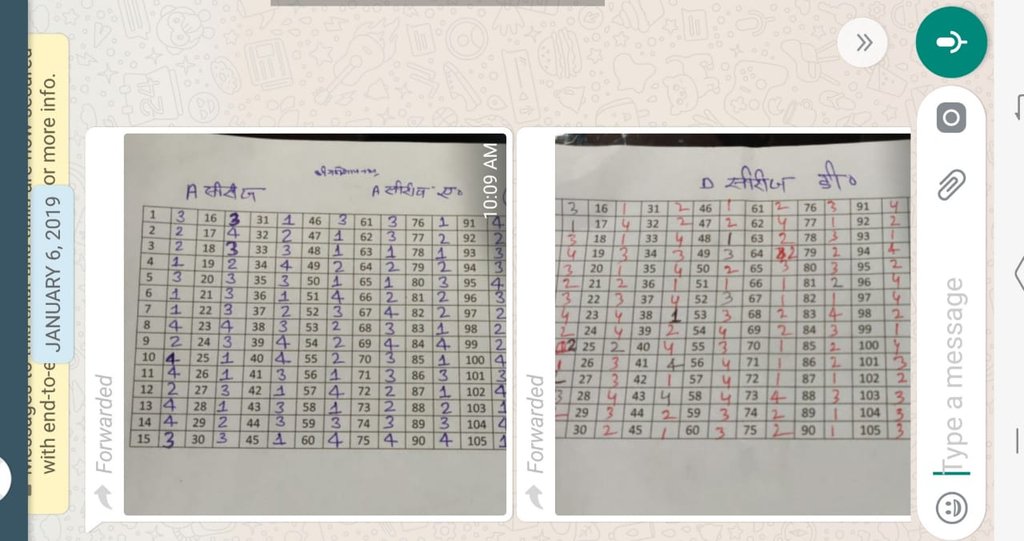 with end-to-e
JANUARY 6, 2019
or more info.
Forwarded
A सीरीज
A सीरीज ए०
10:09 AM
1 3 16 3 31 1 46 3 61 3 76 1 91 4
2 2 17 4 32 2 47 1 62 3 77 2 92 2
3 2 18 3 33 3 48 1 63 1 78 1 93 3
4 1 19 2 34 4 49 2 64 2 79 2 94 3
5 3 20 3 35 3 50 1 65 1 80 3 95 4
6 1 21 3 36 1 51 4 66 2 81 2 96 3
7 1 22 3 37 2 52 3 67 4 82 2 97 2
8 4 23 4 38 3 53 2 68 3 83 1 98 2
9 2 24 3 39 4 54 2 69 4 84 4 99 2
10 4 25 1 40 4 55 2 70 3 85 1 100 4
11 4 26 1 41 3 56 1 71 3 86 3 101 3
12 2 27 3 42 1 57 4 72 2 87 1 102 4
13 4 28 1 43 3 58 1 73 2 88 2 103 1
14 4 29 2 44 3 59 3 74 3 89 3 104 4
15 3 30 3 45 1 60 4 75 4 90 4 105 1
Forwarded
D सीरीज डी०
3 16 1 31 2 46 1 61 2 76 3 91 4
1 17 4 32 2 47 2 62 4 77 1 92 2
3 18 1 33 4 48 1 63 2 78 3 93 1
4 19 3 34 3 49 3 64 2 79 2 94 4
3 20 1 35 4 50 2 65 3 80 3 95 2
2 21 2 36 1 51 1 66 1 81 2 96 4
3 22 3 37 4 52 3 67 1 82 1 97 4
4 23 4 38 1 53 3 68 2 83 4 98 2
2 24 4 39 2 54 4 69 2 84 3 99 1
2 25 2 40 4 55 3 70 1 85 2 100 4
1 26 3 41 4 56 4 71 1 86 2 101 3
27 3 42 1 57 4 72 1 87 1 102 2
3 28 4 43 4 58 4 73 4 88 3 103 3
29 3 44 2 59 3 74 2 89 1 104 3
30 2 45 1 60 3 75 2 90 1 105 3
Type a message